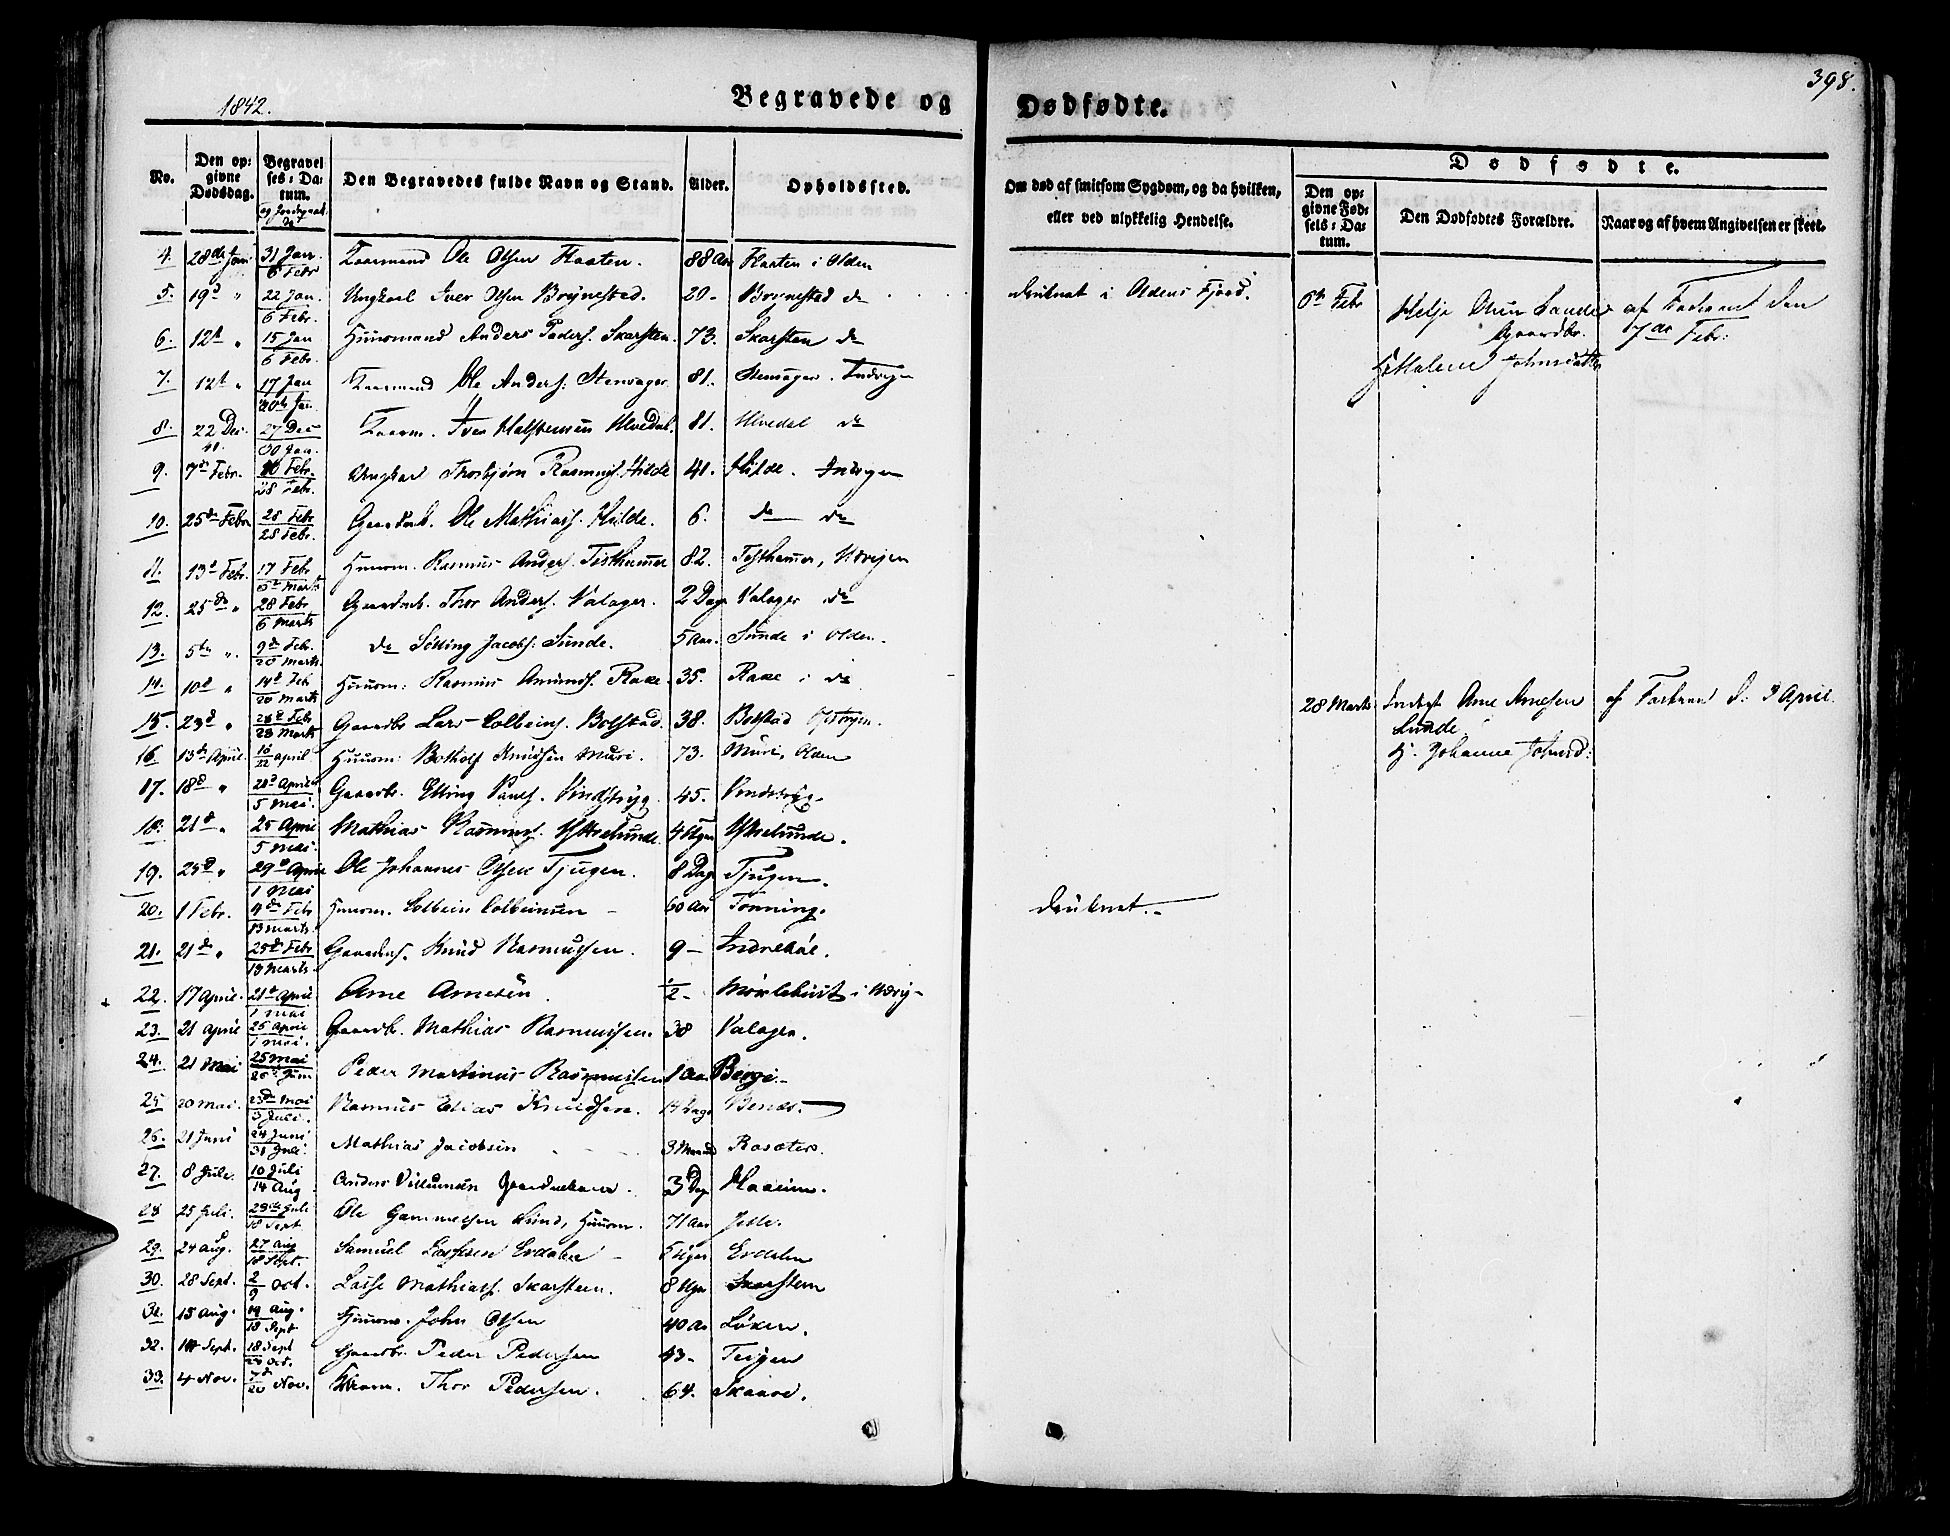 1842.
Begravede og
Dødfødte.
398.
No.
Den op=
givne
Dødsdag.
Begravel
ses=Da=
tum.
Den Begravedes fulde Navn og Stand.
Alder.
Opholdssted.
Om død af smitsom Sygdom, og da hvilken,
eller ved ulykkelig Hendelse.
Dødfødte.
Den op=
givne Fød=
sels=Da=
tum.
Den Dødfødtes Forældre.
Naar og af hvem Angivelsen er skeet.
4. 28de Jan 31 Jan. 6 Febr Kaarmand Ole Olsen Haaten. 88 Aar Haaten i Olden
5. 19d " 22 Jan. 6 Febr. Ungkarl Iver Olsen Brynestad. 20 - Brynestad do druknet i Oldens Fjord.
6te Febr Helje Sunde Gaardbr. af Faderen den 7de Febr.
H. Malene Johnsdatter
6. 12t " 15 Jan 6 Febr. Huusmand Anders Peders. Skarsten. 73. Skarsten do
7. 12t " 17 Jan 30te Jan. Kaarmand Ole Anders. Stensager. 81. Stensager. Indvigen
8. 22 Dec. 41. 27 Dec 30 Jan. Kaarm. Iver Halstensen Ulvedal. 81. Ulvedal do
9. 7de Febr. 10 Febr. 28 Febr. Ungkarl Thorbjørn Rasmus. Hilde 41. Hilde. Indvigen
10. 25de Febr 28 Febr 28 Febr. Ole Mathias. Hilde. 6. do do
11. 13d Febr. 17 Febr 6te Marts Huusm. Rasmus Anders. Tisthammer 82. Tisthammer, Udvigen
12. 25de " 28 Febr 6 Marts Thor Anders. Valager. 2 Dage Valager do
13. 5te ". 9d Febr. 20 Marts. do Sølling Jacobs. Sunde. 5 Aar. Sunde i Olden.
14. 10d " 14d Feb 20 Marts Huusm: Rasmus Amunds. Rake. 35. Rake i do
15. 23d " 28d Feb 28 Marts Gaardbr Lars Colbeins. Bolstad. 38. Bolstad
28 Marts Arne Arnesen Sunde af Faderen d: 3 April.
H. Johanne Johnsd:
16. 13de April. 16 22 april Huusm: Botholf Knudsen Muri. 73. Muri, Olden
17. 18d " 21d April 5 Mai. Gaardbr. Elling Pauls. Vindsryg. 45. Vindsryg.
18. 21d " 25 April 5 Mai. Mathias Rasmus. Ytrelunde. 4 Uger Ytrelunde.
19. 25d " 29d April 1 Mai Ole Johannes Olsen Tjugen. 8 Dage Tjugen.
20. 1 Febr. 4de Feb 13 Marts. Huusm. Colbein Colbeinsen - 60 Aar Tonning. druknet.
21. 21d " 25d Febr 13 Marts. Knud Rasmussen. 9 - Indrebøe.
22. 17 April. 21d April 1 mai Arne Arnesen. ½ - i Udvig-
23. 21 april 25 April 1 Mai. Gaardbr. Mathias Rasmussen. 38 Valager.
24. 21 Mai 25 Mai 26d Juni Peder Martinus Rasmussen 1 Aar Berge.
25 20 mai. 23de Mai 3 Juli. Rasmus Elias Knudsen. 14 Dage Benes.
26. 21 Juni 24 Juni 31 Juli Mathias Jacobsen 3 Maaned Rosæter.
27. 8 Juli. 10 Juli 14 Aug Anders Villumsen 3 Dage Haaheim.
28 25 Juli. 29de Juli 18 Sept Ole Gammelsen Lund, Huusm. 71 Aar
29. 24 aug. 27 Aug 18 Sept. Samuel Lassesen Erdalen - 5 Uger Erdalen
30. 28 Sept. 2 9 Oct. Lasse Mathias. Skarsteen. 8 Uger Skarsteen
31. 15 Aug. 19 Aug. 18 Sept Huusm. John Olsen 40 Aar Løken.
32. 14 Sept. 18 Sept 20 Oct. Gaardbr. Peder Pedersen 43 - Teigen
33. 4 Nov. 7d 20 Nov. Thor Pedersen. 64. Skaare.